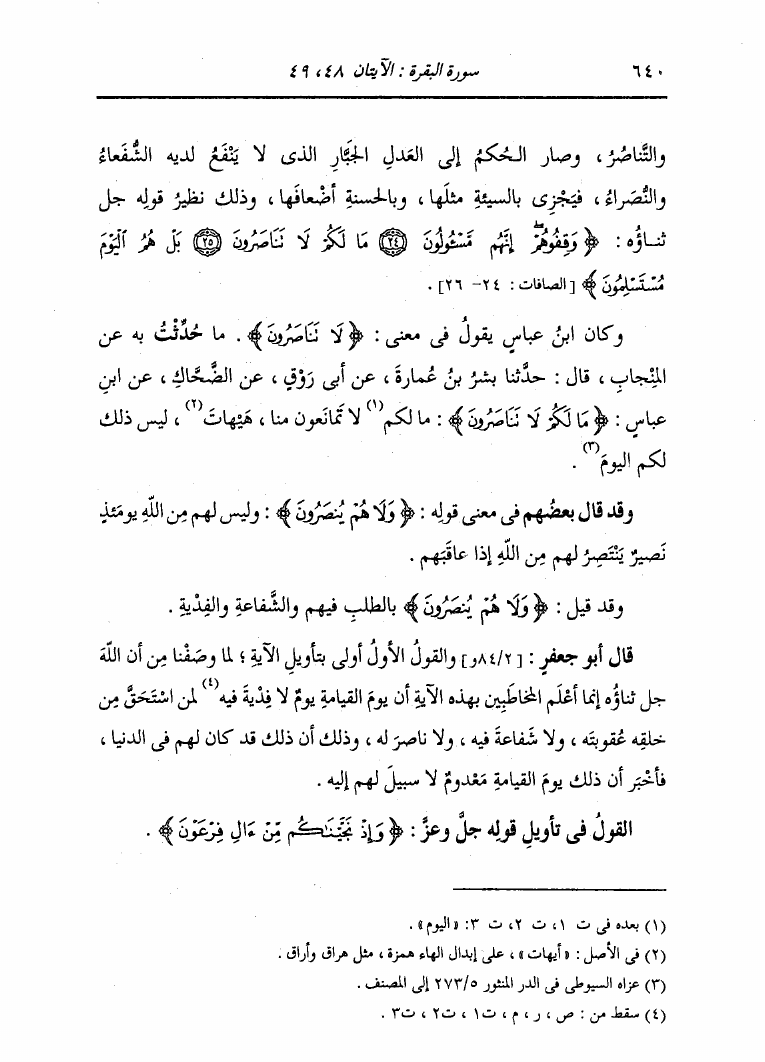 ٦٤٠ سورة البقرة : الآيتان ٤٨، ٤٩
والتَّناصُرُ ، وصار الحُكمُ إلى العَدلِ الجَبَّارِ الذى لا يَنْفَعُ لديه الشُّفَعاءُ
والنُّصَراءُ ، فيَجْزِى بالسيئةِ مثلَها ، وبالحسنةِ أضْعافَها ، وذلك نظيرُ قولِه جل
ثناؤُه : ﴿ وَقِفُوهُمْۖ إِنَّهُم مَّسْئُولُونَ ﴿٢٤﴾ مَا لَكُمْ لَا تَنَاصَرُونَ ﴿٢٥﴾ بَلْ هُمُ ٱلْيَوْمَ
مُسْتَسْلِمُونَ ﴾ [ الصافات : ٢٤- ٢٦] .
وكان ابنُ عباسٍ يقولُ فى معنى : ﴿ لَا تَنَاصَرُونَ ﴾ . ما حُدِّثْتُ به عن
المِنْجابِ ، قال : حدَّثنا بشرُ بنُ عُمارةَ ، عن أبى رَوْقٍ ، عن الضَّحَّاكِ ، عن ابنِ
عباسٍ : ﴿ مَا لَكُمْ لَا تَنَاصَرُونَ ﴾ : ما لكم(١) لا تَمانَعون منا ، هَيْهاتَ(٢) ، ليس ذلك
لكم اليومَ(٣) .
وقد قال بعضُهم فى معنى قولِه : ﴿ وَلَا هُمْ يُنصَرُونَ ﴾ : وليس لهم مِن اللَّهِ يومَئذٍ
نَصيرٌ يَنْتَصِرُ لهم مِن اللَّهِ إذا عاقَبَهم .
وقد قيل : ﴿ وَلَا هُمْ يُنصَرُونَ ﴾ بالطلبِ فيهم والشَّفاعةِ والفِدْيةِ .
قال أبو جعفرٍ : [ ٨٤/٢و] والقولُ الأولُ أولى بتأويلِ الآيةِ ؛ لما وصَفْنا مِن أن اللَّهَ
جل ثناؤُه إنما أعْلَم المخاطَبِين بهذه الآيةِ أن يومَ القيامةِ يومٌ لا فِدْيةَ فيه(٤) لمن اسْتَحَقَّ مِن
خلقِه عُقوبتَه ، ولا شَفاعةَ فيه ، ولا ناصرَ له ، وذلك أن ذلك قد كان لهم فى الدنيا ،
فأخْبَر أن ذلك يومَ القيامةِ مَعْدومٌ لا سبيلَ لهم إليه .
القولُ فى تأويلِ قولِه جلَّ وعزَّ : ﴿ وَإِذْ نَجَّيْنَٰكُم مِّنْ ءَالِ فِرْعَوْنَ ﴾ .
(١) بعده فى ت ١، ت ٢، ت ٣: «اليوم» .
(٢) فى الأصل : «أيهات» ، على إبدال الهاء همزة ، مثل هراق وأراق .
(٣) عزاه السيوطى فى الدر المنثور ٢٧٣/٥ إلى المصنف .
(٤) سقط من : ص ، ر ، م ، ت١ ، ت٢ ، ت٣ .